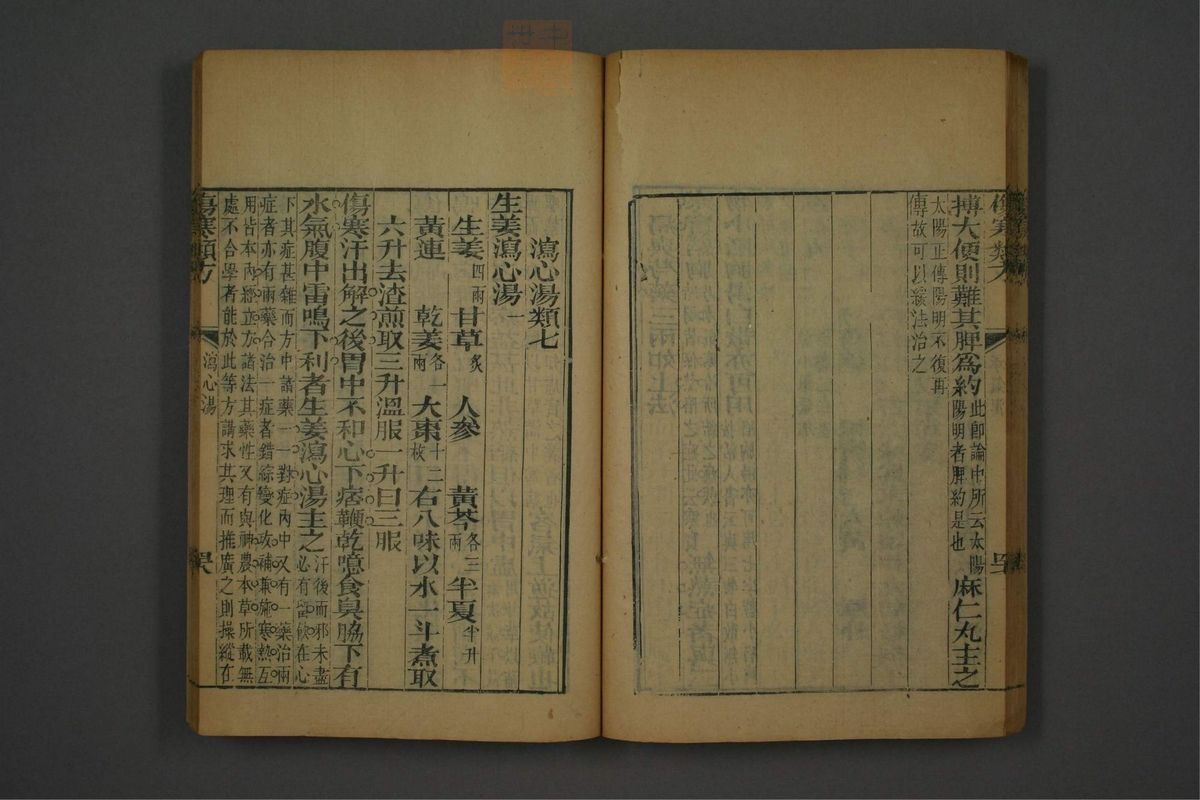 搏大便則難其脾爲約此卽論中所云太陽陽明者脾約是也麻仁丸主之
太陽正傳陽明不復再
傳故可以緩法治之
瀉心湯類七
生姜瀉心湯一
生姜四兩 甘草炙 人參 黃芩各三兩 半夏半升
黃連 乾姜各一兩 大棗十二枚 右八味以水一斗煮取
六升去渣煎取三升溫服一升日三服
傷寒汗出解之後胃中不和心下痞鞕乾噫食臭脇下有
水氣腹中雷鳴下利者生姜瀉心湯主之汗後而邪未盡必有留飲在心
下其症甚雜而方中諸藥一一對症內中又有一藥治兩
症者亦有兩藥合治一症者錯綜變化攻補兼施寒熱互
用皆本內經立方諸法其藥性又有與神農本草所載無
處不合學者能於此等方講求其理而推廣之則操縱在
傷寒類方
瀉心湯